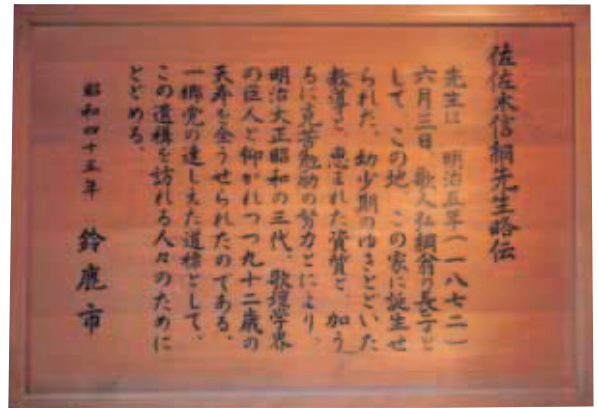 佐佐木信綱先生略伝
先生は 明治五年(一八七二)
六月三日 歌人弘綱翁の長子と
して、この地 この家に誕生せ
られた、幼少期のゆきとどいた
教導と 恵まれた資質と 加う
るに克苦勉励の努力とにより、
明治大正昭和の三代、歌壇学界
の巨人と仰がれつつ九十二歳の
天寿を全うせられたのである、
一郷党の達しえた道標として、
この遺構を訪れる人々のために
とどめる、
昭和四十五年 鈴鹿市